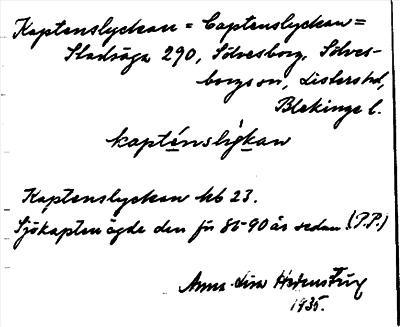 Kaptenslyckan = Captenslyckan =
Stadsäga 290, Sölvesborg, Sölves-
borgs sn, Listers hd,
Blekinge l.
kapténslýkan
Kaptenslyckan kb 23.
Sjökapten ägde den för 85-90 år sedan. (P.P.)
Anna-Lisa
1935.